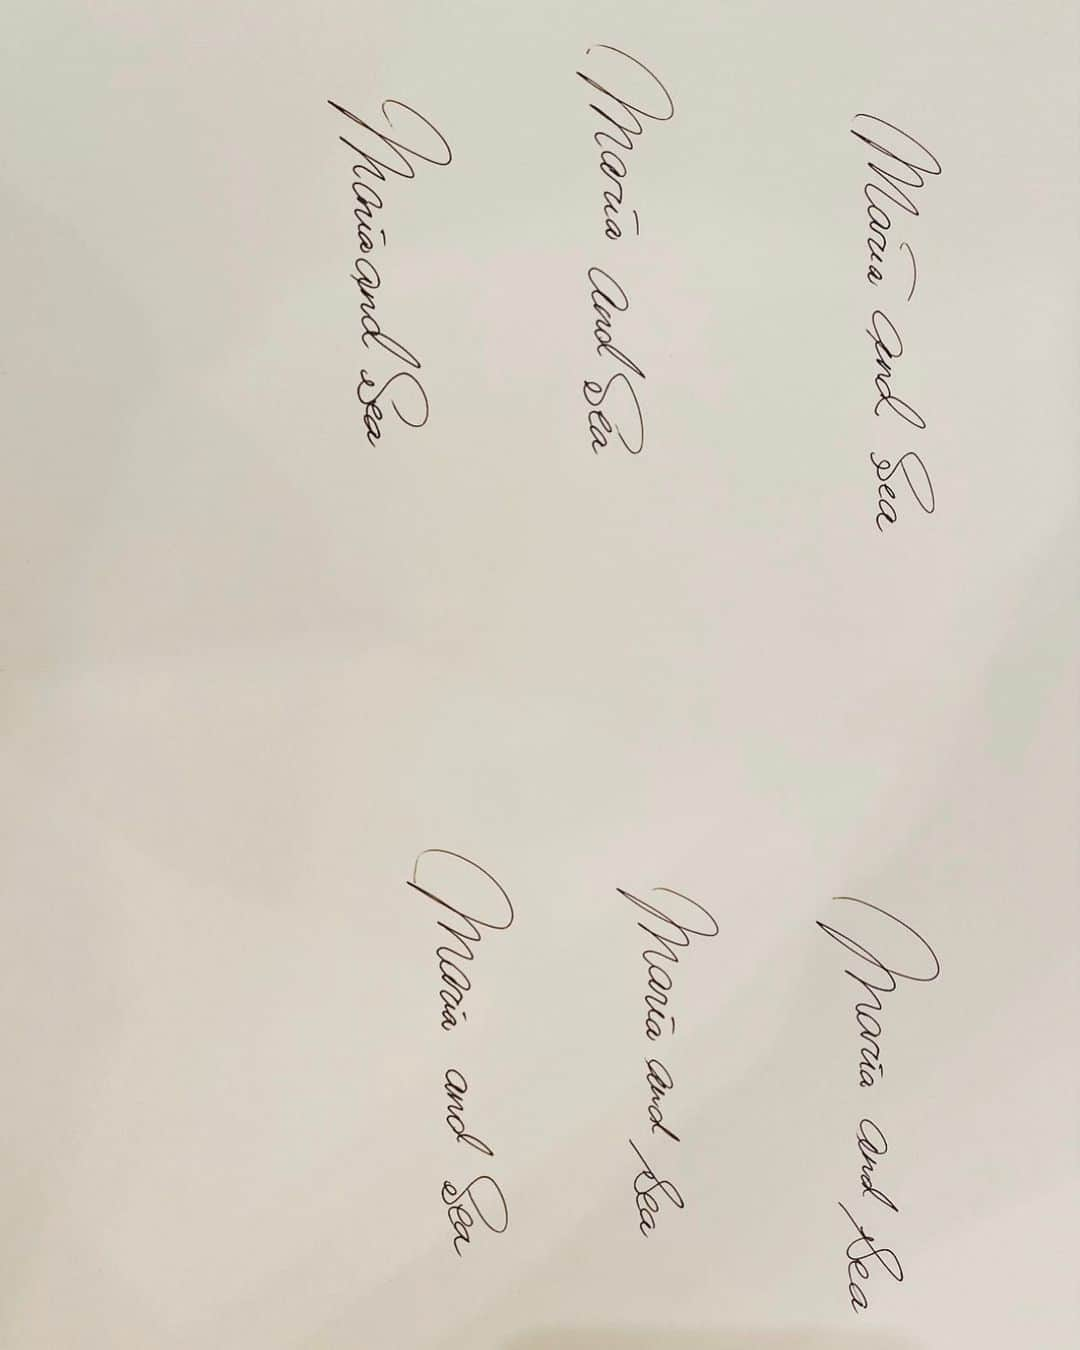 Maria and Sea
Maria and Sea
Maria and Sea
Maria and Sea
Maria and Sea
Maria and Sea